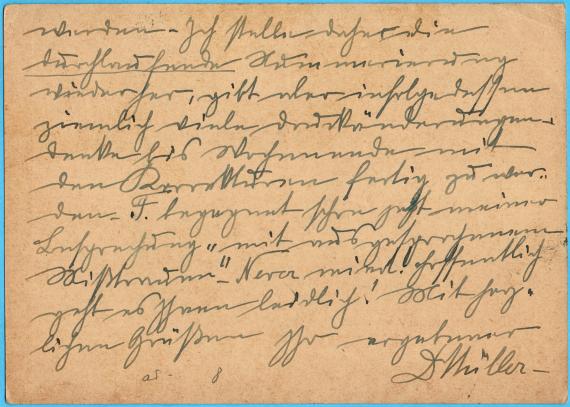 werden – Ich stelle daher die
durchlaufende Nummerierung
wieder her, gibt aber infolgedessen
ziemlich viele Druckänderungen –
denke bis Wochenende mit
den Korrekturen fertig zu wer-
den – F. begegnet schon jetzt meiner
Besprechung „mit ausgesprochenem
Mißtrauen“ – wird! Hoffentlich
geht es Ihnen leidlich! Mit herz-
lichen Grüßen Ihr ergebener
DMüller –
8